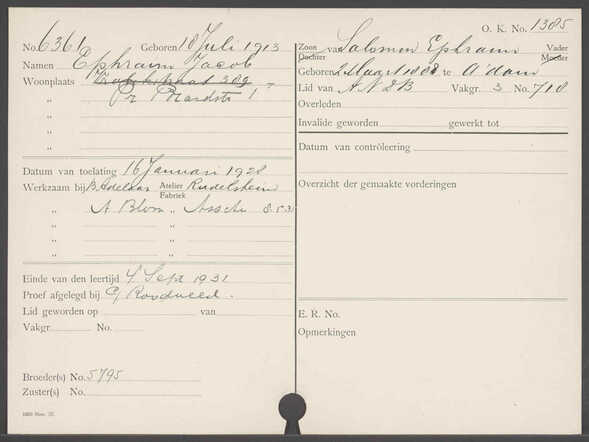 O. K. No. 1385
No. 6361 Geboren 18 Juli 1913
Namen Ephraim Jacob
Woonplaats 209
„ Pr Brandstr 1
„
„
„
Datum van toelating 16 Januari 1928
Werkzaam bij B. Adelaar Atelier Fabriek Rudelsheim
„ A Blom „ Asscher 8.5.31
„ „
„ „
„ „
Einde van den leertijd 4 Sept 1931
Proef afgelegd bij G Roodveld.
Lid geworden op van
Vakgr. No.
Broeder(s) No. 5795
Zuster(s) No.
Zoon Dochter van Salomon Ephraim Vader Moeder
Geboren 2 Maart 1888 te A'dam
Lid van ANDB Vakgr. 3 No. 718
Overleden
Invalide geworden gewerkt tot
Datum van contrôleering
Overzicht der gemaakte vorderingen
E. R. No.
Opmerkingen